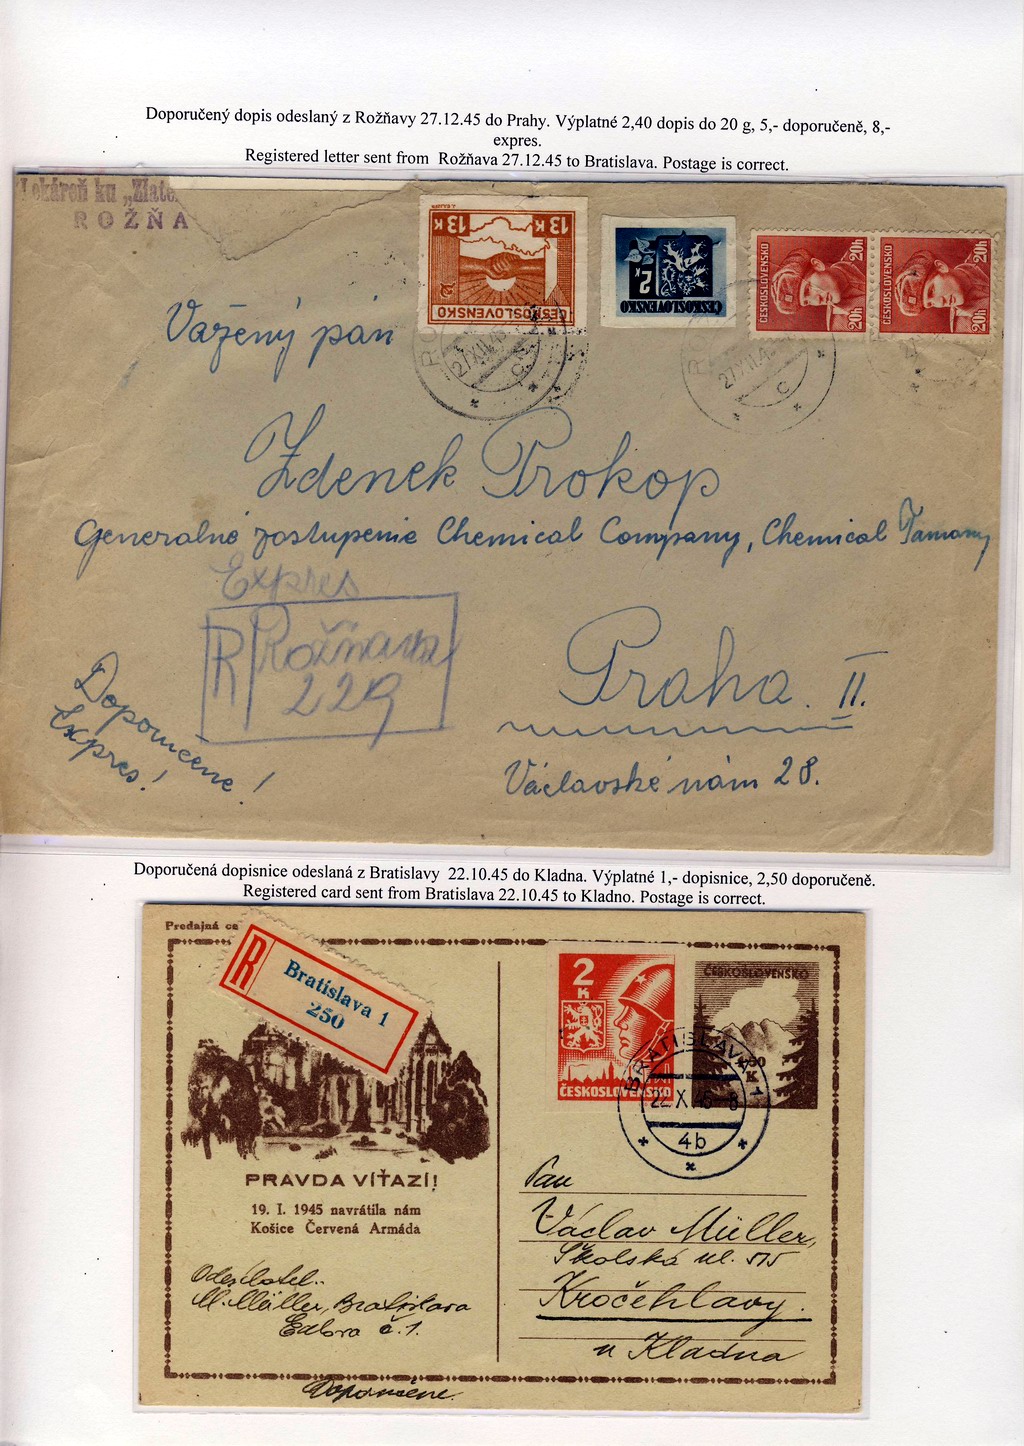 Doporučený dopis odeslaný z Rožňavy 27.12.45 do Prahy. Výplatné 2,40 dopis do 20 g, 5,- doporučeně, 8,-
expres.
Registered letter sent from Rožňava 27.12.45 to Bratislava. Postage is correct.
Lekáreň ku „Zlate
ROŽŇA
13 K 13 K
ČESKOSLOVENSKO
2 K
ČESKOSLOVENSKO
ČESKOSLOVENSKO 20h 20h
ČESKOSLOVENSKO 20h 20h
27 XII 4
C
27 XII 4
C
Vážený pán
Zdenek Prokop
Generalné zostupenie Chemical Company, Chemical
Expres
R Rožňava
229
Doporučene!
Expres!
Praha II.
Václavské nám 28.
Doporučená dopisnice odeslaná z Bratislavy 22.10.45 do Kladna. Výplatné 1,- dopisnice, 2,50 doporučeně.
Registered card sent from Bratislava 22.10.45 to Kladno. Postage is correct.
Predajná ce
R Bratislava 1
250
2 K
ČESKOSLOVENSKO
ČESKOSLOVENSKO
50 K
BRATISLAVA 1
22.X.45-8
4b
PRAVDA VÍŤAZÍ!
19. I. 1945 navrátila nám
Košice Červená Armáda
Odesilatel:
M. Müller, Bratislava
č. 1.
Doporučene.
Pan
Václav Müller,
Školská ul. 515
Kročehlavy.
u Kladna